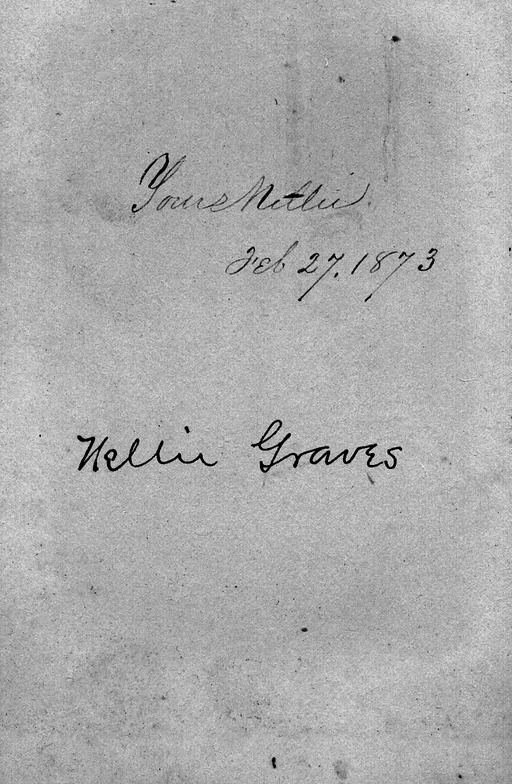 Yours Nettie.
Feb 27, 1873
Nellie Graves